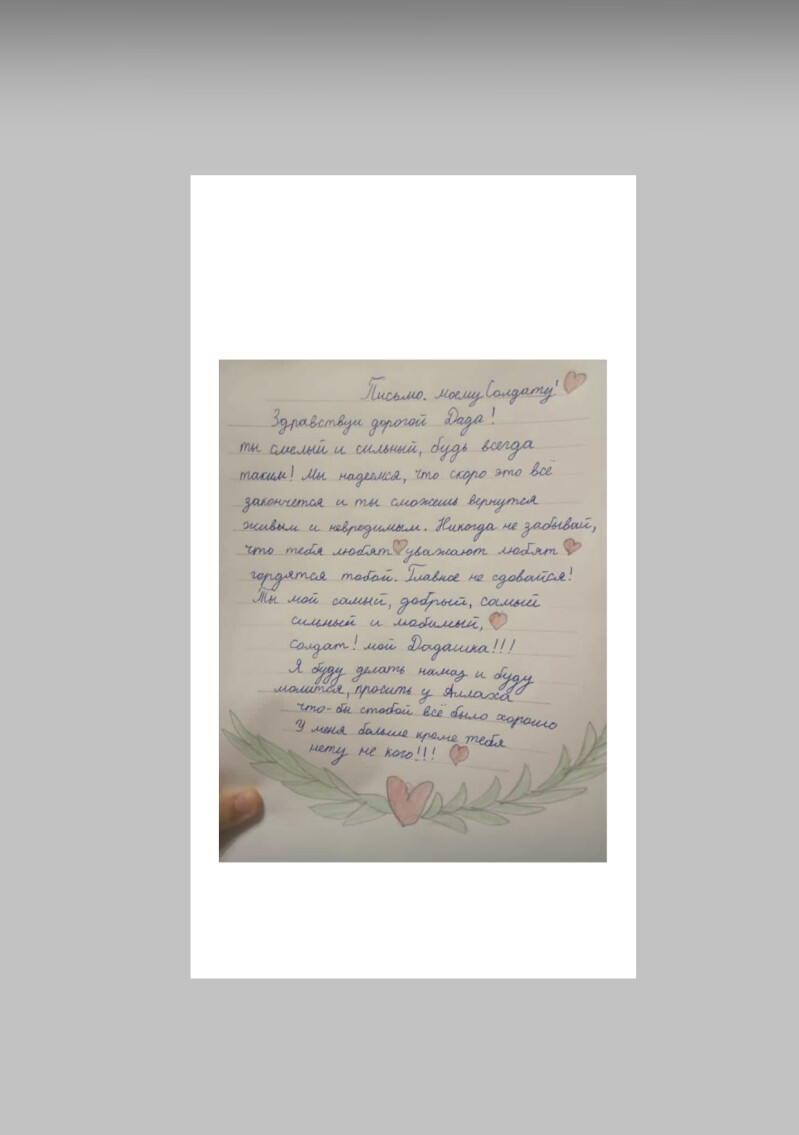 Письмо. моему Солдату!
Здравствуи дорогой Дада!
ты смелый и сильный, будь всегда
таким! Мы надеемся, что скоро это всё
закончется и ты сможешь вернутся
живым и невродимым. Никогда не забывай,
что тебя любят уважают любят
гордятся тобой. Главное не сдовайся!
Ты мой самый, добрый, самый
сильный и любимый,
солдат! мой Дадашка!!!
Я буду делать намаз и буду
молится, просить у Аллаха
что-бы стобой всё было хорошо
У меня больше кроме тебя
нету не кого!!!